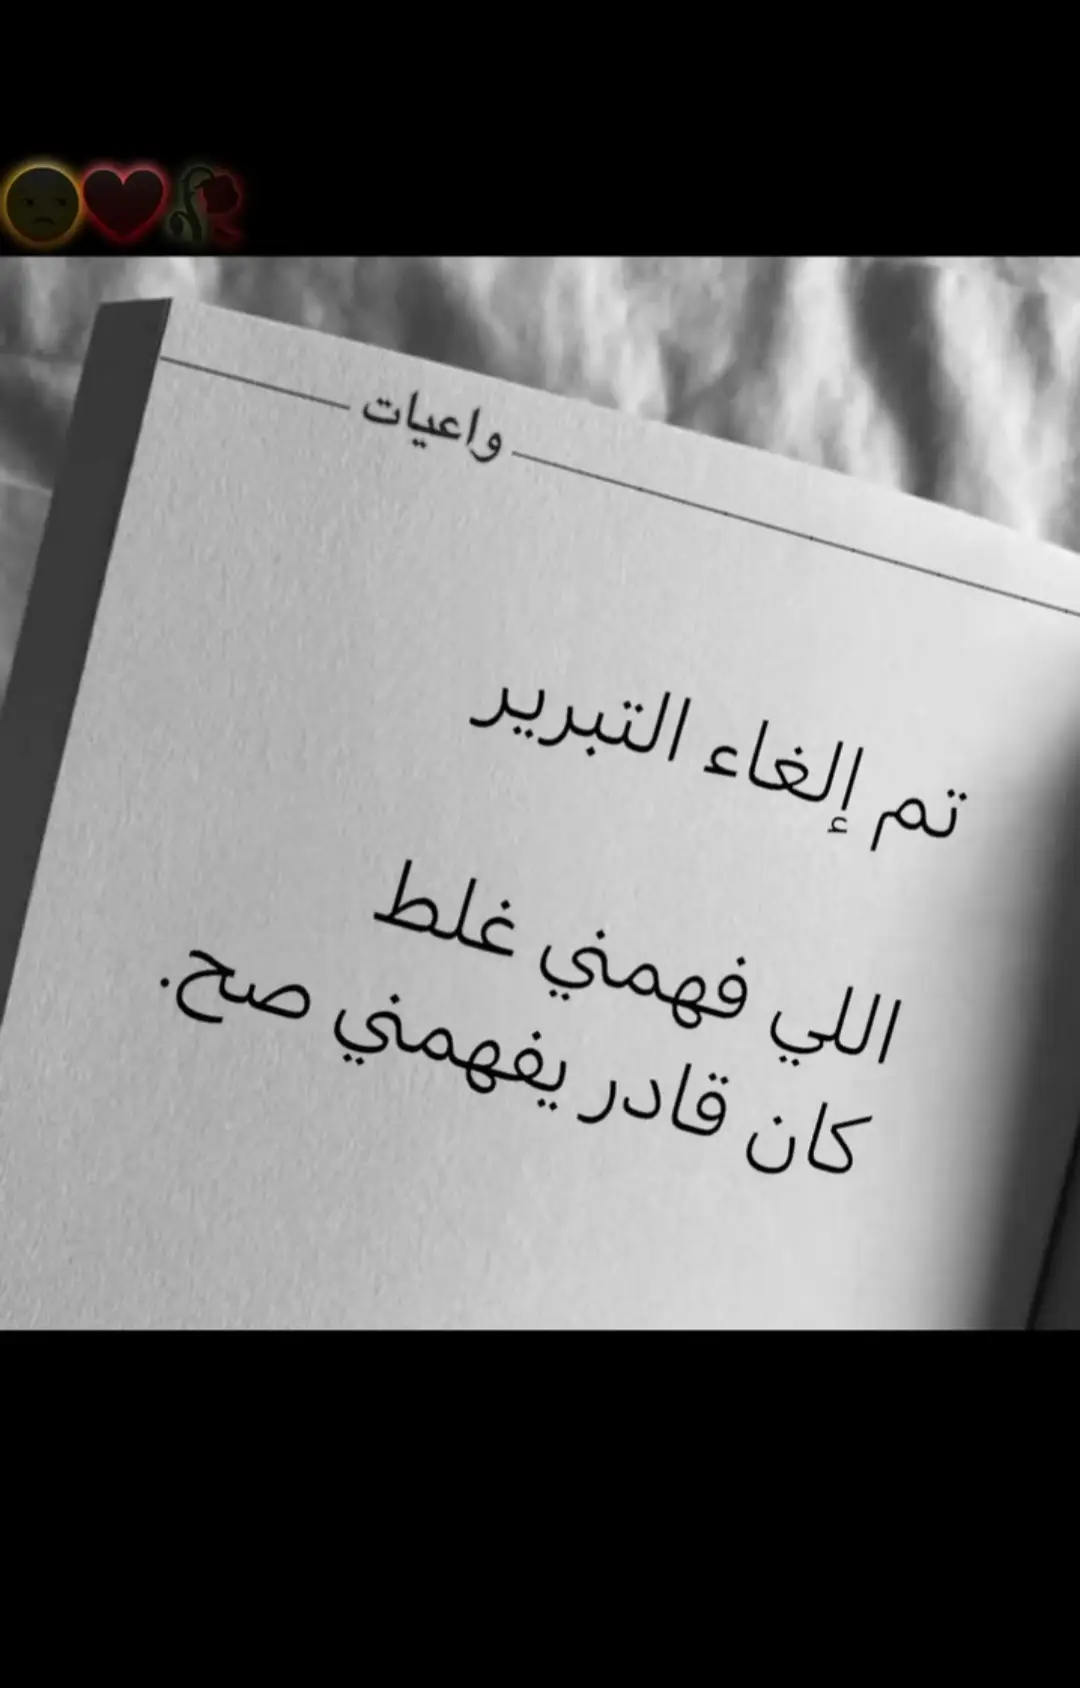 واعيات
تم إلغاء التبرير
اللي فهمني غلط
كان قادر يفهمني صح.